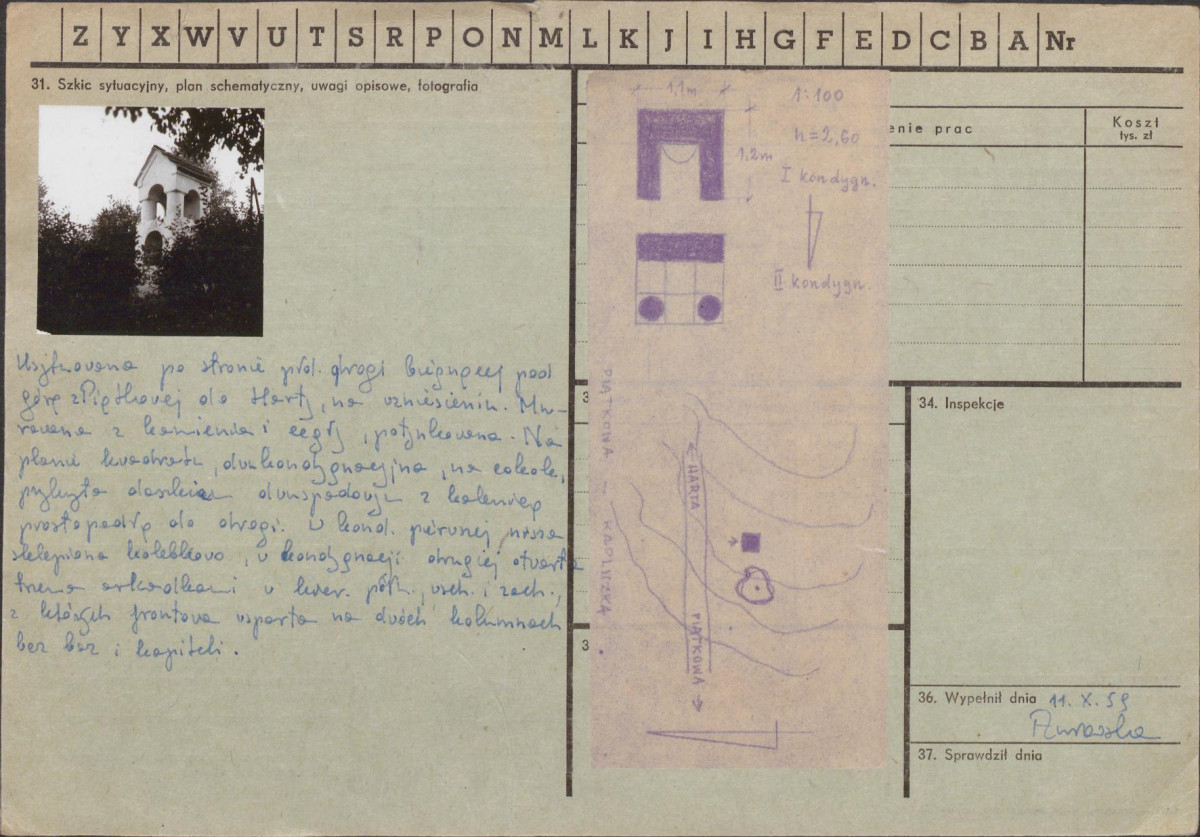 Z Y X W V U T S R P O N M L K J I H G F E D C B A Nr
31. Szkic sytuacyjny, plan schematyczny, uwagi opisowe, fotografia
Usytuowana po stronie płd. drogi biegnącej pod
górę z Piątkowej do Harty, na wzniesieniu. Mu-
rowana z kamienia i cegły, potynkowana. Na
planie kwadratu, dwukondygnacyjna, na cokole,
przykryta daszkiem dwuspadowym z kalenicą
prostopadłą do drogi. W kond. pierwszej nisza
sklepiona kolebkowo, w kondygnacji drugiej otwarta
trzema arkadkami w kier. półn., wsch. i zach.,
z których frontowa wsparta na dwóch kolumnach
bez baz i kapiteli.
1,1m
1:100
h=2,60
1,2m
I kondygn.
II kondygn.
PIĄTKOWA – KAPLICZKA
HARTA
PIĄTKOWA
enie prac
Koszt
tys. zł
3
3
34. Inspekcje
36. Wypełnił dnia 11. X. 59
37. Sprawdził dnia